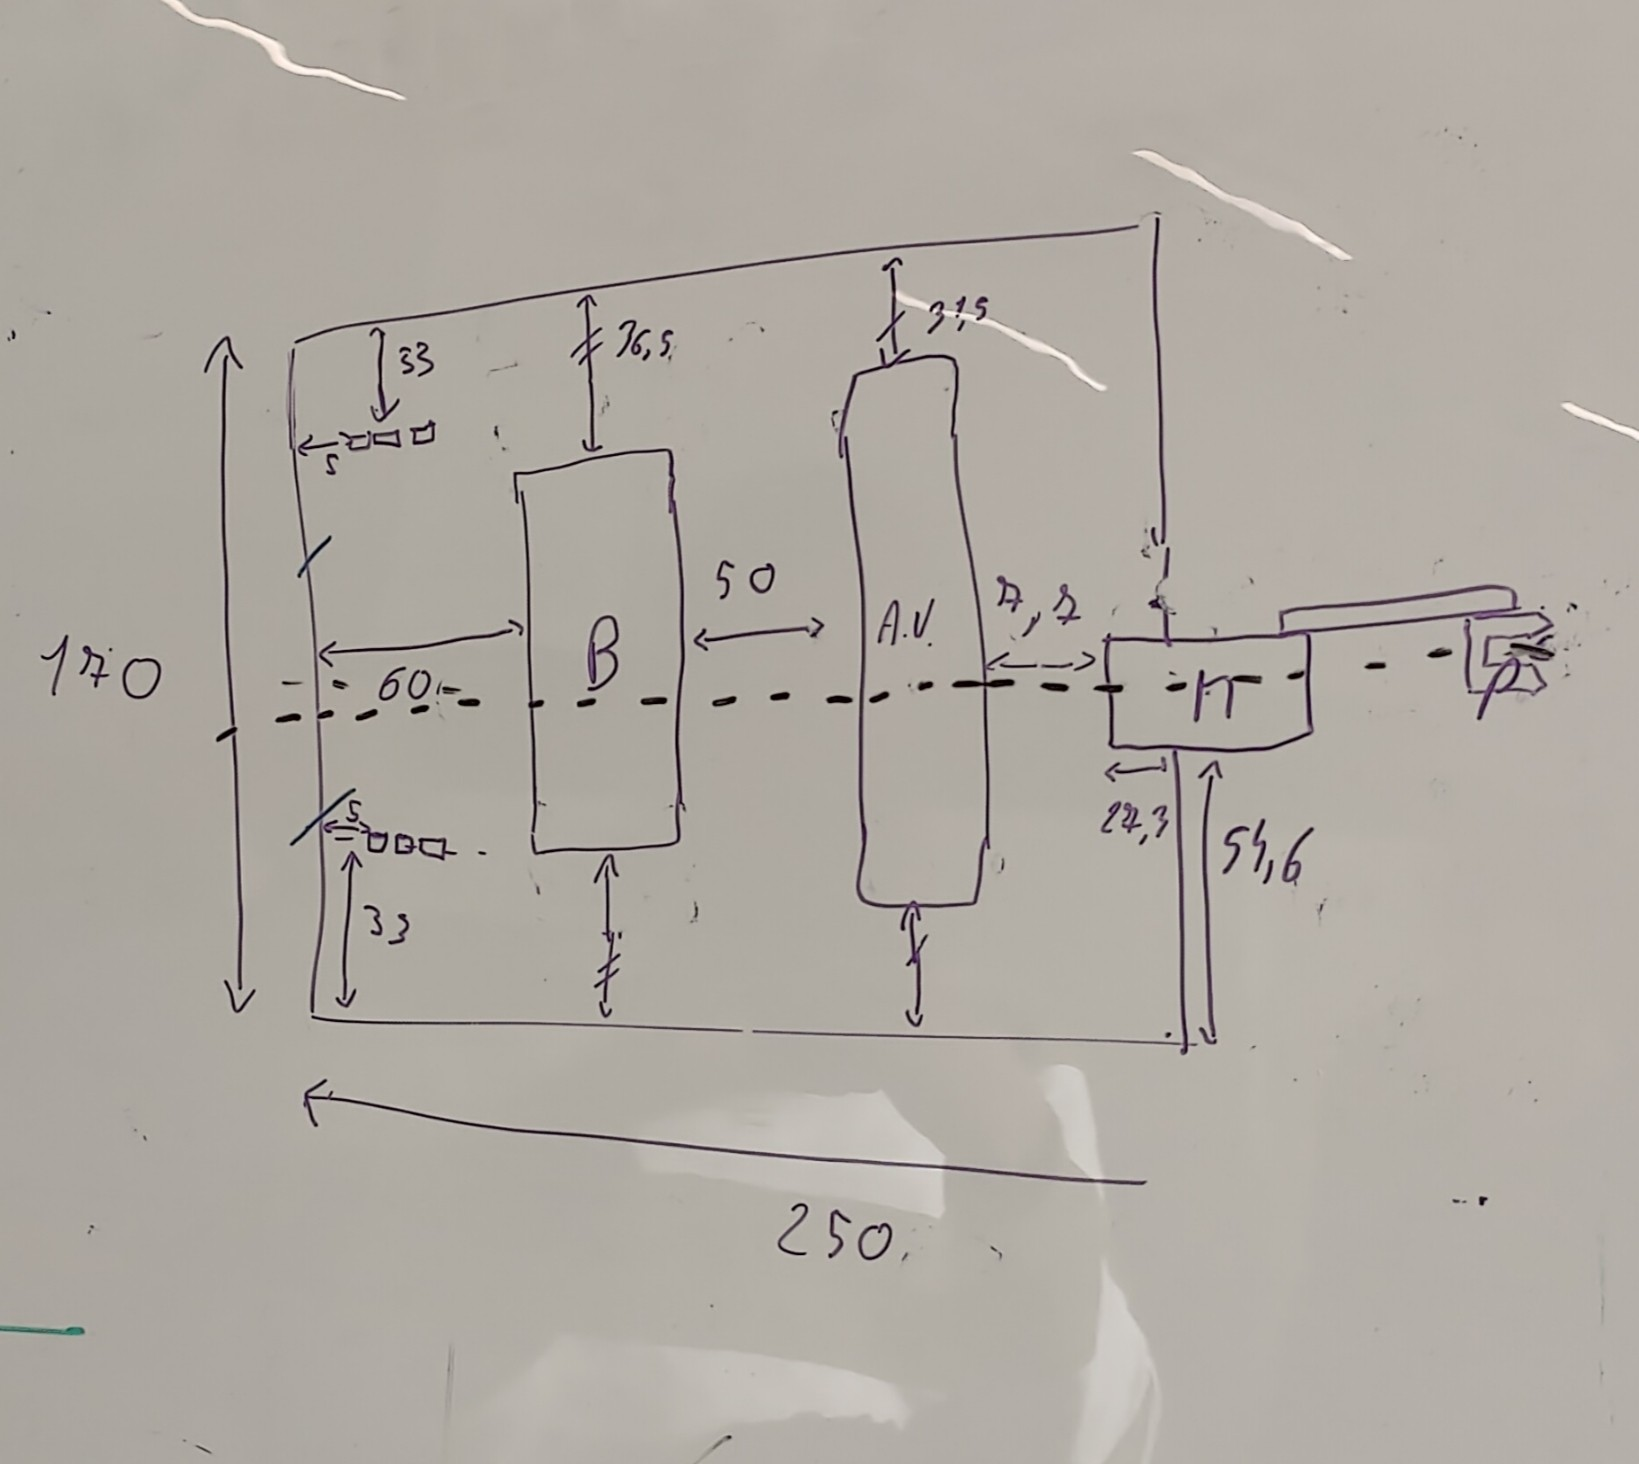 33
36,5
31,5
5
50
7,7
170
B
A.V.
60
MT
5
27,3
54,6
33
250